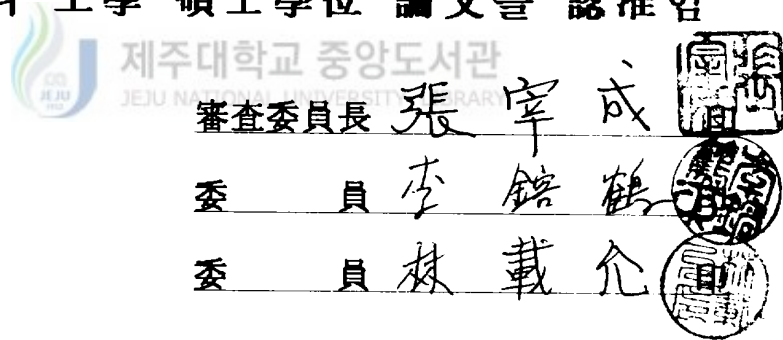 工學 碩士學位 論文을 認准함
제주대학교 중앙도서관
JEJU NATIONAL UNIVERSITY LIBRARY
審査委員長 張宰成 印
委員 李鎔鶴 印
委員 林載允 印